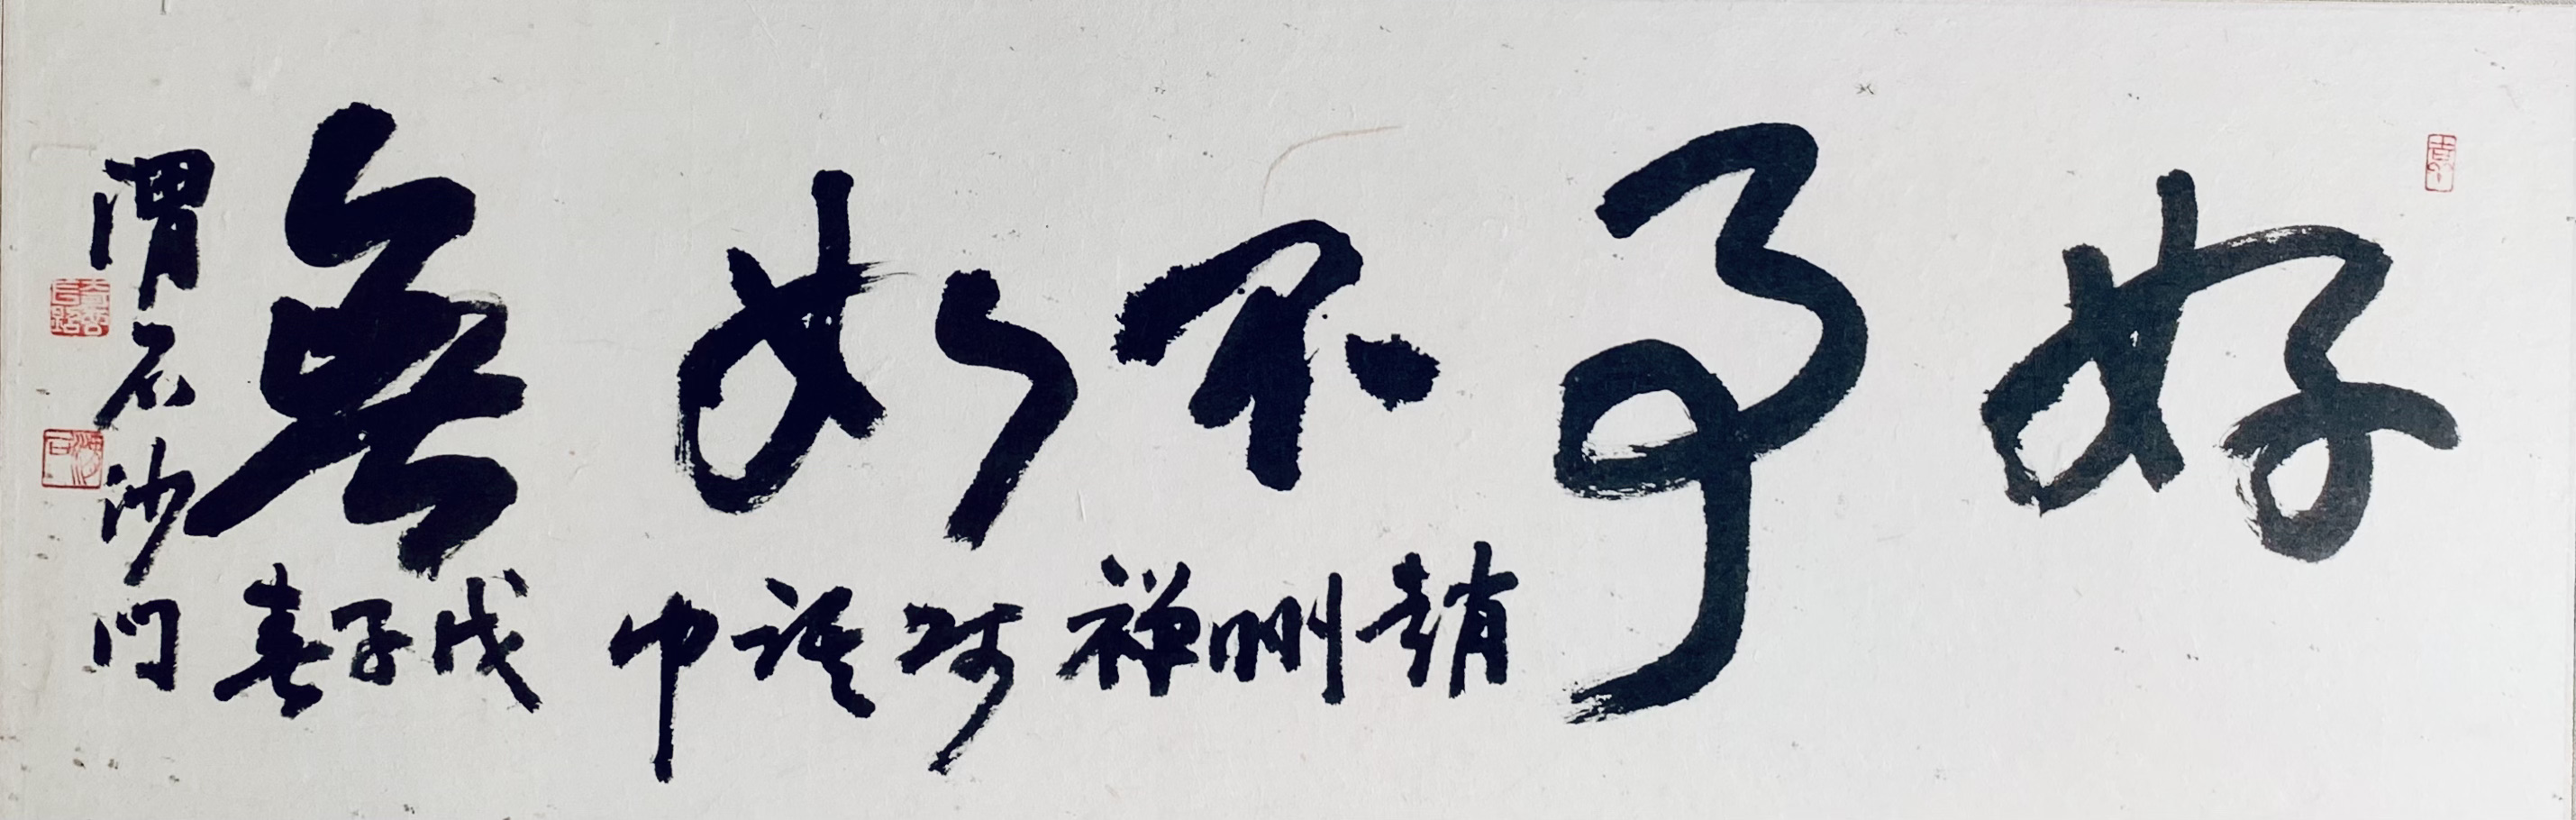 好事不如無
趙州禪師語
戊子春
渭石沙门